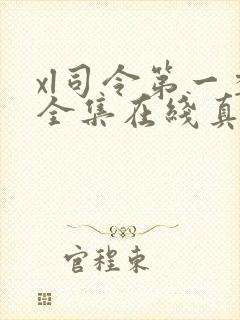 xl司令第一
全集在线真
官程東